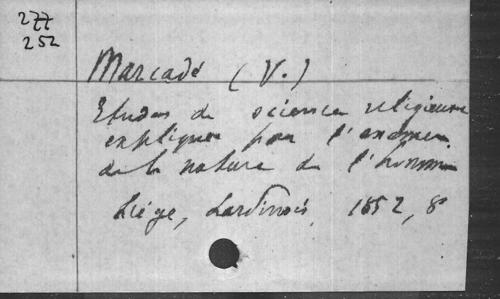 277
252
Marcadé (V.)
Etudes de science religieuse
expliquée par l'examen
de la nature de l'homme
Liége, Lardinois, 1852, 8°